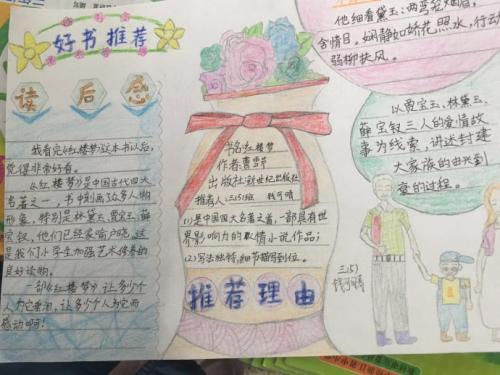 好书推荐
读后感
我看完《红楼梦》这本书以后,
觉得非常好看。
《红楼梦》是中国古代四大
名著之一,书中刻画了众多人物
形象,特别是林黛玉、贾宝玉、薛
宝钗,他们已经家喻户晓,这
是我们小学生加强艺术修养的
良好读物。
一部《红楼梦》让多少
人为它垂泪,让多少人为它而
感动啊!
书名:红楼梦
作者:曹雪芹
出版社:新世纪出版社
推荐人:三(5)班
(1)是中国四大名著之首,一部具有世
界影响力的爱情小说作品;
(2)写法独特,细节描写到位。
推荐理由
他细看黛玉:两弯
含情目。娴静如娇花照水,行动
弱柳扶风。
以贾宝玉、林黛玉、
薛宝钗三人的爱情故
事为线索,讲述封建
大家族的由兴到
衰的过程。
三(5)